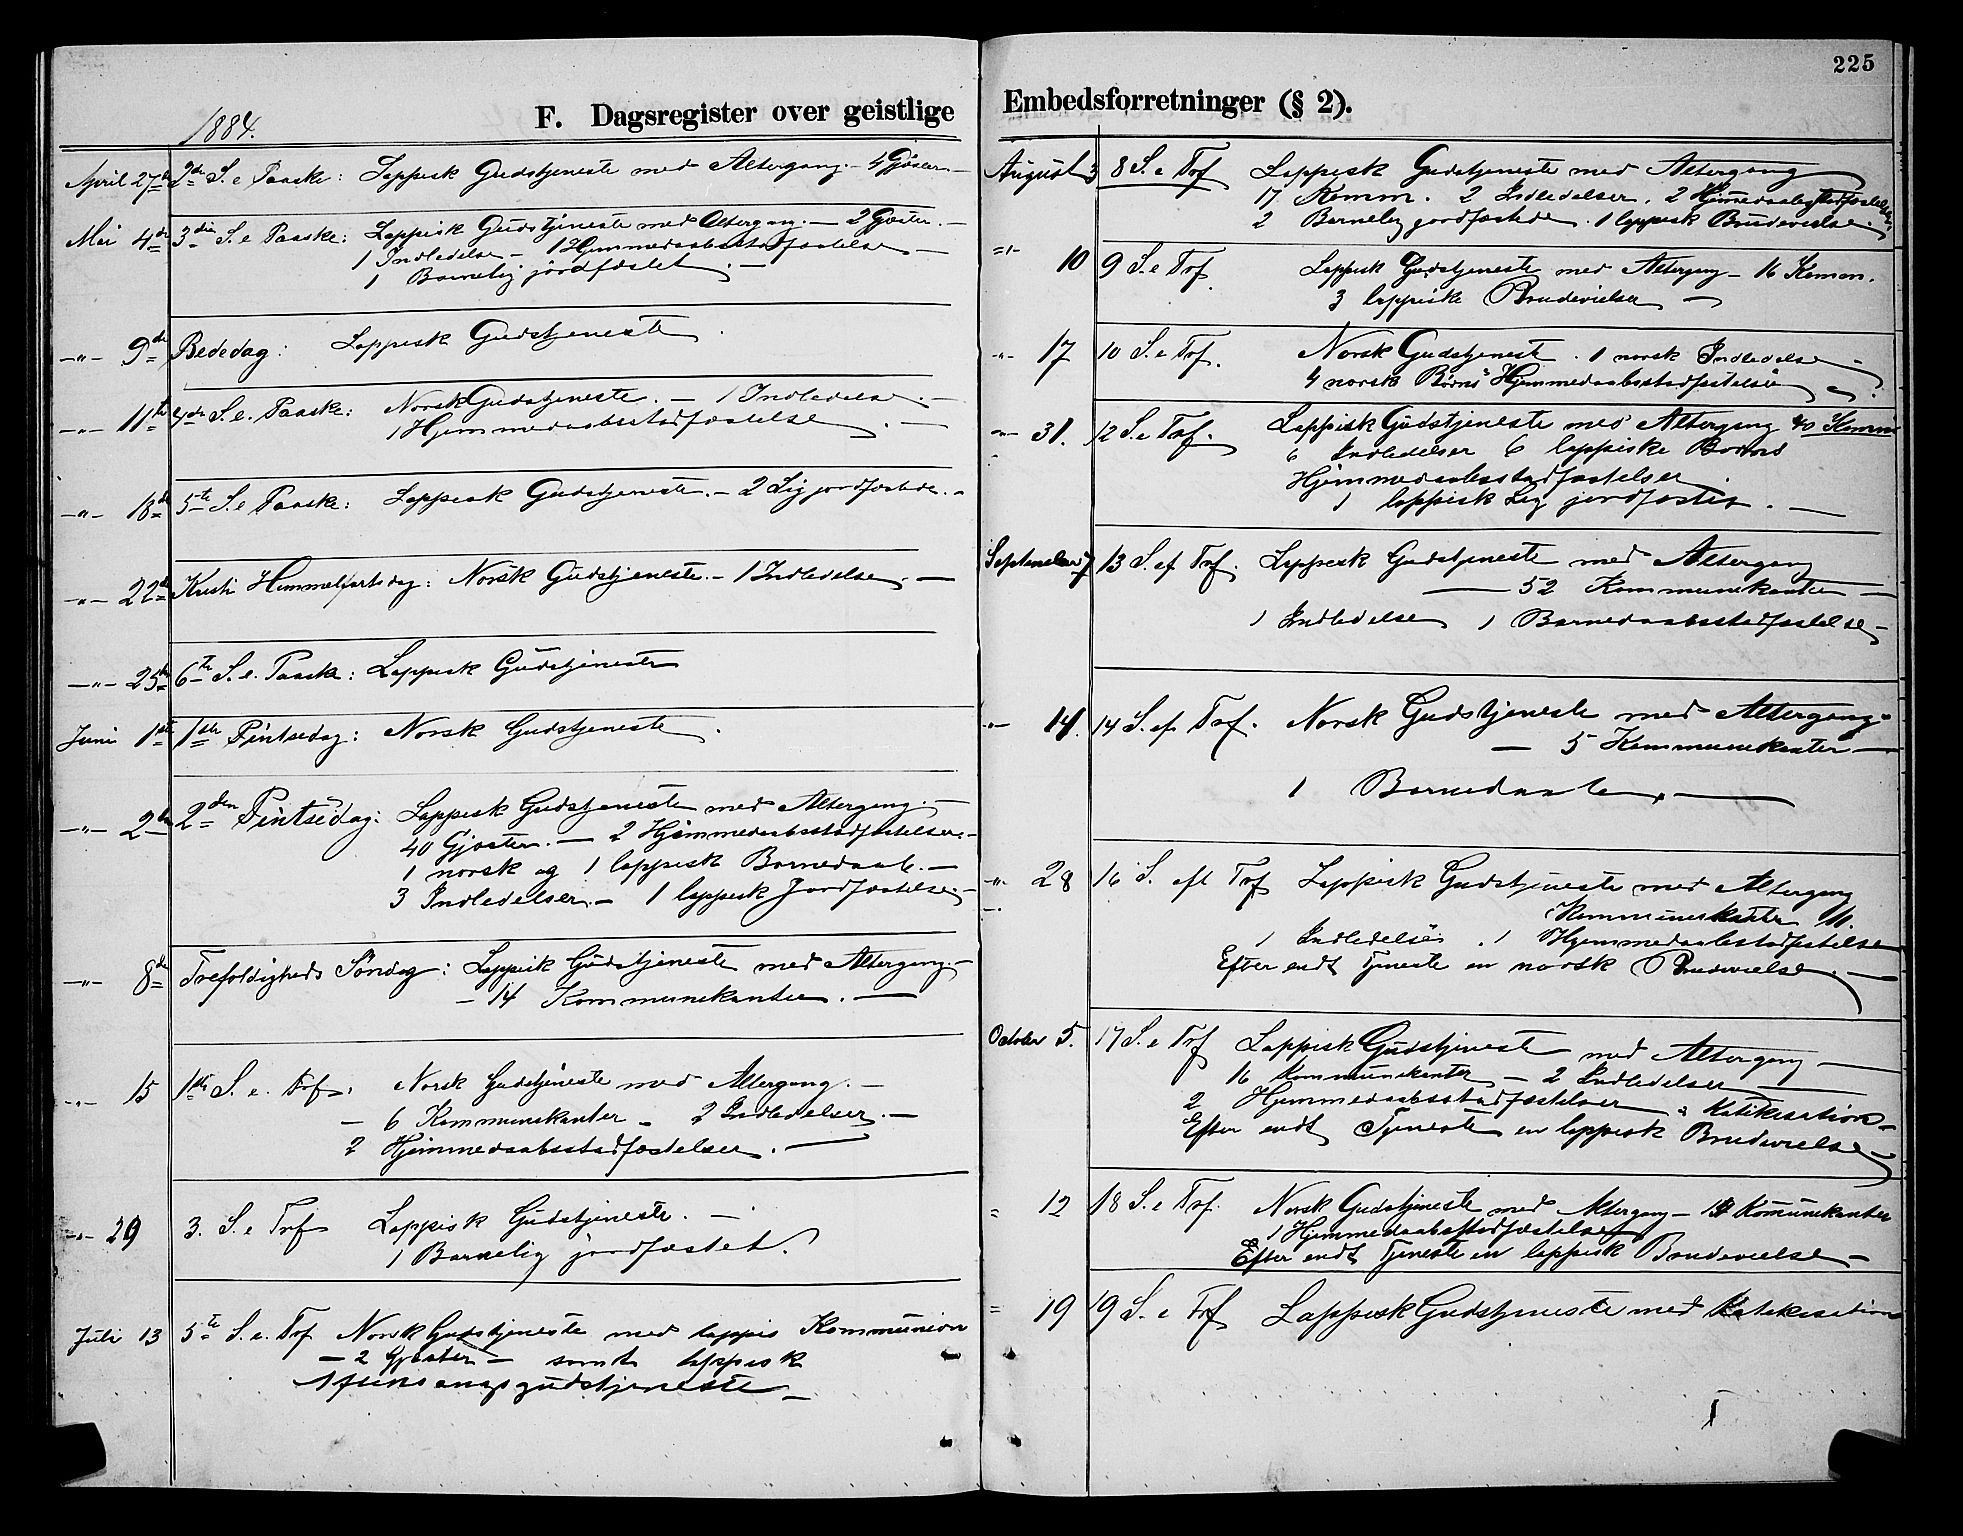 225
1884.
F. Dagsregister over geistlige Embedsforretninger (§ 2).
April 27de 2den S. e Paaske: Lappisk Gudstjeneste med Altergang. – 4 Gjöster. –
Mai 4de 3die S. e Paaske: Lappisk Gudstjeneste med Altergang. – 2 Gjöster. –
1 Indledelse – 1 Hjemmedaabsstadfæstelse –
1 Barnelig jordfæstet. –
–"– 9de Bededag: Lappisk Gudstjeneste.
–"– 11te 4de S. e. Paaske: Norsk Gudstjeneste. – 1 Indledelse. –
1 Hjemmedaabsstadfæstelse. –
–"– 18de 5te S. e Paaske: Lappisk Gudstjeneste. – 2 Lig jordfæstede. –
–"– 22de Kristi Himmelfartsdag: Norsk Gudstjeneste. – 1 Indledelse. –
–"– 25de 6te S. e. Paaske: Lappisk Gudstjeneste
Juni 1ste 1ste Pintsedag: Norsk Gudstjeneste.
–"– 2den 2den Pintsedag: Lappisk Gudstjeneste med Altergang. –
40 Gjöster. – 2 Hjemmedaabsstadfæstelser. –
1 norsk og 1 lappisk Barnedaab. –
3 Indledelser. – 1 lappisk Jordfæstelse. –
–"– 8de Trefoldigheds Söndag: Lappisk Gudstjeneste med Altergang. –
– 14 Kommunikanter. –
–"– 15 1ste S. e. Trf: Norsk Gudstjeneste med Altergang. –
– 6 Kommunikanter – 2 Indledelser. –
2 Hjemmedaabsstadfæstelser. –
–"– 29 3. S. e Trf Lappisk Gudstjeneste. –
1 Barnelig jordfæstet.
Juli 13 5te S. e. Trf Norsk Gudstjeneste med lappis Kommunion
– 2 Gjöster – samt lappisk
Aftensangsgudstjeneste –
August 3 8 S. e Trf Lappisk Gudstjeneste med Altergang
17 Komm. 2 Indledelser. 2 Hjemmedaabsstadfæstelser
2 Barnelig jordfæstede. 1 lappisk Brudevielse.
–"– 10 9 S. e Trf. Lappisk Gudstjeneste med Altergang – 16 Komm.
3 lappiske Brudevielser –
–"– 17 10 S. e Trf. Norsk Gudstjeneste. 1 norsk Indledelse –
4 norsk Börns Hjemmedaabsstadfæstelse
–"– 31. 12 S. e Trf. Lappisk Gudstjeneste med Altergang 40 Komm
6 Indledelser 6 lappiske Borns
Hjemmedaabsstadfæstelser.
1 lappisk Lig jordfæstes. –
September 7 13 S. ef Trf. Lappisk Gudstjeneste med Altergang
– 52 Kommunikanter –
1 Indledelse 1 Barnedaabsstadfæstelse –
–"– 14. 14 S. ef. Trf. Norsk Gudstjeneste med Altergang –
– 5 Kommunikanter –
1 Barnedaab. –
–"– 28 16 S. eft Trf Lappisk Gudstjeneste med Altergang
Kommunikanter 11.
1 Indledelse. 1 Hjemmedaabsstadfæstelse
Efter endt Tjeneste en norsk Brudevielse. –
October 5. 17 S. e Trf Lappisk Gudstjeneste med Altergang –
16 Kommunikanter – 2 Indledelser –
2 Hjemmedaabsstadfæstelser – Katikisation –
Efter endt Tjeneste en lappisk Brudevielse –
= 12 18 S. e Trf. Norsk Gudstjeneste med Altergang – Kommunikanter
1 Hjemmedaabsstadfæstelse
Efter endt Tjeneste en lappisk Brudevielse –
= 19 19 S. e Trf Lappisk Gudstjeneste med Katikisation